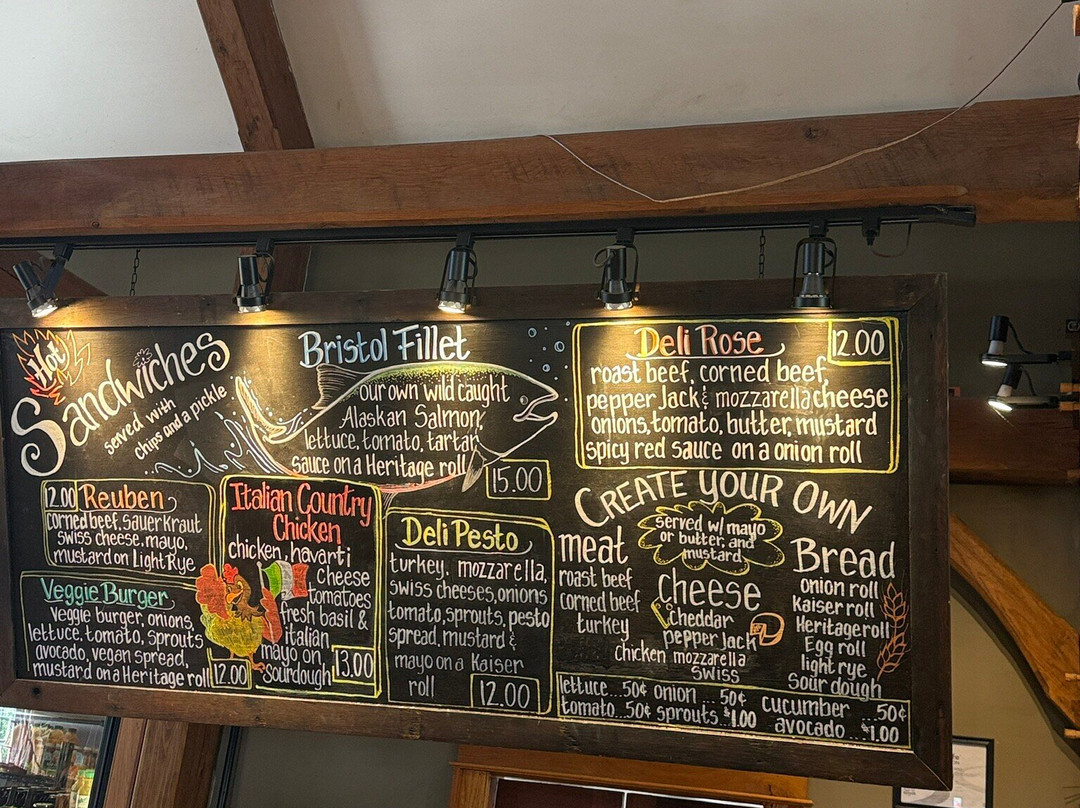 Hot
Sandwiches
served with
chips and a pickle
Bristol Fillet
our own wild caught
Alaskan Salmon,
lettuce, tomato, tartar
sauce on a Heritage roll
15.00
Deli Rose
12.00
roast beef, corned beef,
pepper Jack & mozzarella cheese
onions, tomato, butter, mustard
spicy red sauce on a onion roll
12.00 Reuben
corned beef, sauerkraut
swiss cheese, mayo,
mustard on Light Rye
Veggie Burger
Veggie burger, onions,
lettuce, tomato, sprouts
avocado, vegan spread,
mustard on a Heritage roll
12.00
Italian Country
Chicken
chicken, havarti
cheese
tomatoes
fresh basil &
italian
mayo on
sourdough
13.00
Deli Pesto
turkey, mozzarella,
swiss cheeses, onions
tomato, sprouts, pesto
spread, mustard &
mayo on a Kaiser
roll
12.00
CREATE YOUR OWN
served w/ mayo
or butter, and
mustard.
meat
roast beef
corned beef
turkey
chicken
cheese
cheddar
pepper jack
mozzarella
swiss
Bread
onion roll
Kaiser roll
Heritage roll
Egg roll
light rye
Sour dough
lettuce...50¢ onion...50¢ cucumber...50¢
tomato...50¢ sprouts.$1.00 avocado...$1.00